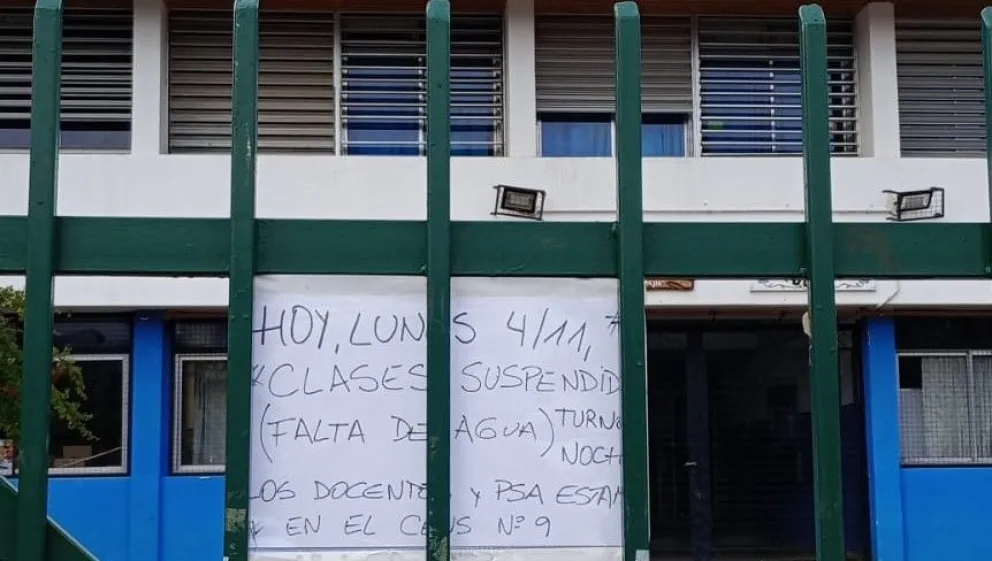 HOY, LUNES 4/11, *
*CLASES SUSPENDID
(FALTA DE AGUA) TURNO
NOCH
LOS DOCENTES y PSA ESTAN
* EN EL CENS Nº 9